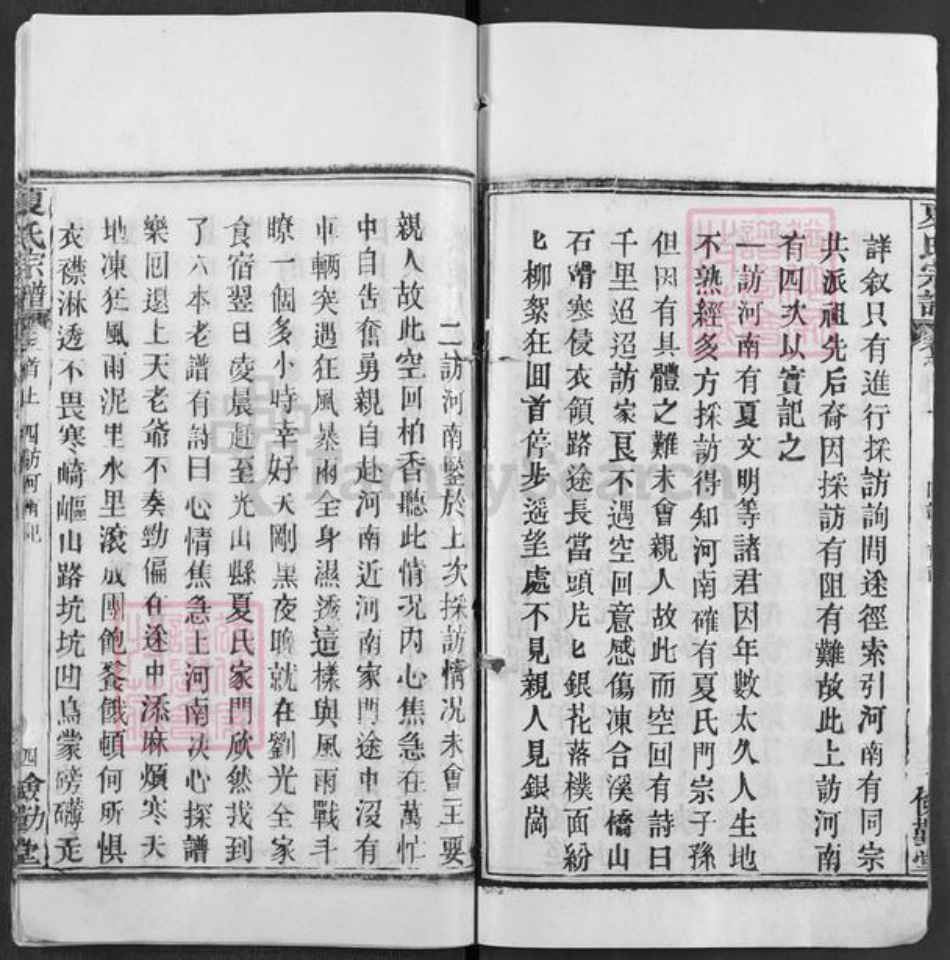 詳叙只有進行採訪詢問途徑索引河南有同宗
共派祖先后裔因採訪有阻有難故此上訪河南
有四次以實記之
一訪河南有夏文明等諸君因年數太久人生地
不熟經多方採訪得知河南確有夏氏門宗子孫
但因有具體之難未會親人故此而空回有詩曰
千里迢迢訪家艮不遇空回意感傷凍合溪橋山
石滑寒侵衣領路途長當頭片匕銀花落樸面紛
匕柳絮狂囬首停步遥望處不見親人見銀崗
二訪河南鑒於上次採訪情况未會主要
親人故此空回柏香聽此情况内心焦急在萬忙
中自告奮勇親自赴河南近河南家門途中没有
車輛突遇狂風暴雨全身濕透這樣與風雨戰斗
瞭一個多小時幸好天剛黑夜晚就在劉光全家
食宿翌日凌晨赶至光山縣夏氏家門欣然找到
了六本老譜有詩曰心情焦急上河南决心探譜
樂囘還上天老爺不奏勁偏在途中添麻煩寒天
地凍狂風雨泥里水里滚成團飽餐餓頓何所惧
衣襟淋透不畏寒崎嶇山路坑坑凹烏蒙磅礴走
夏氏宗譜 四訪河南記 四 堂
FamilySearch